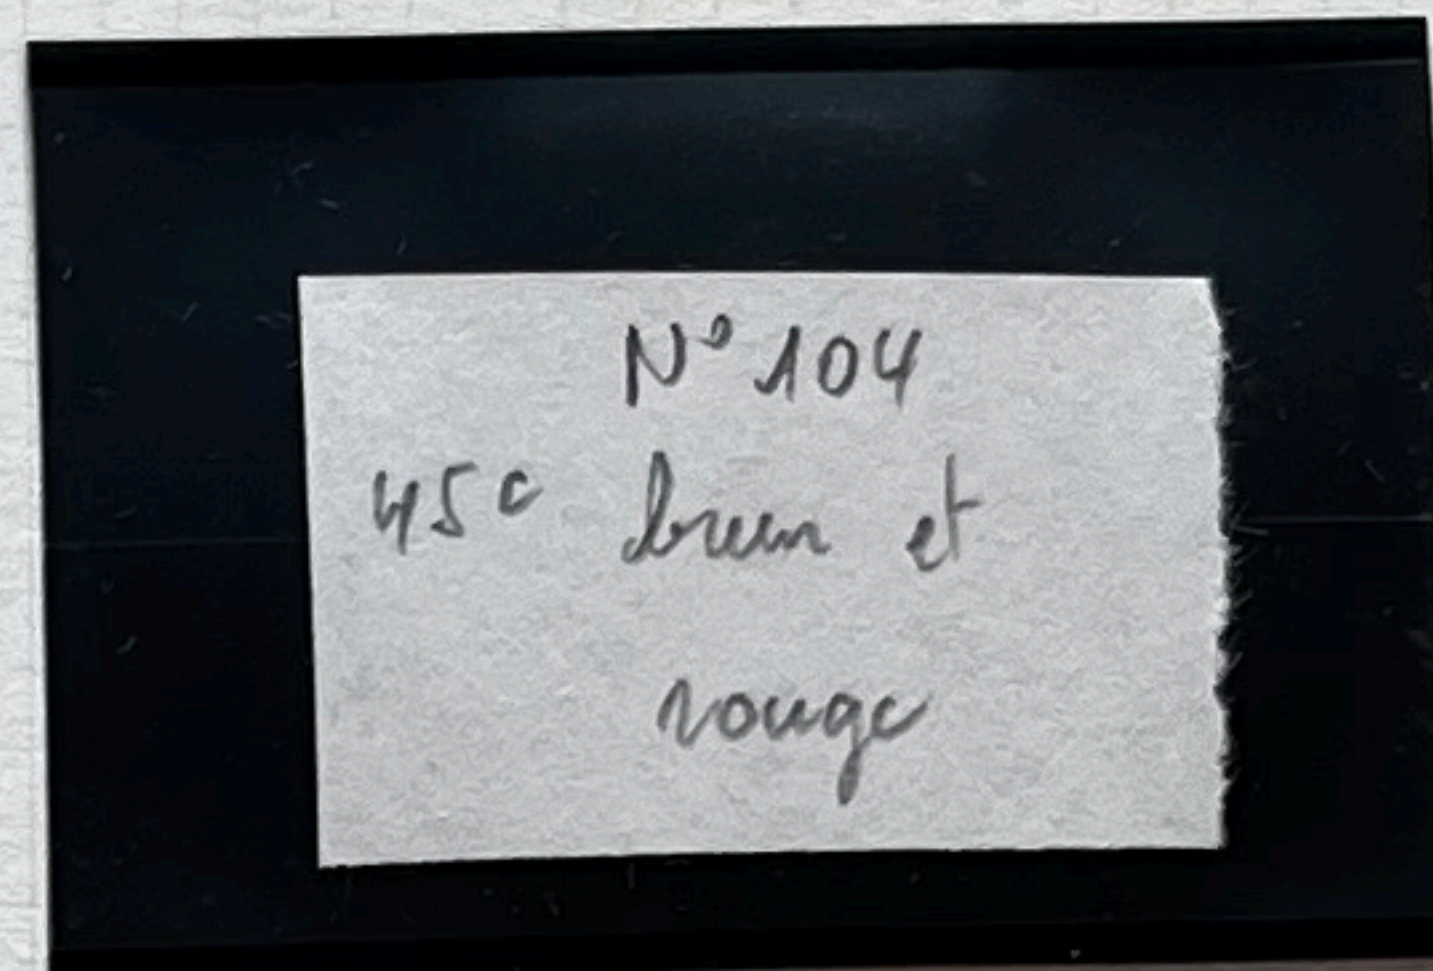 N° 104
45c brun et
rouge